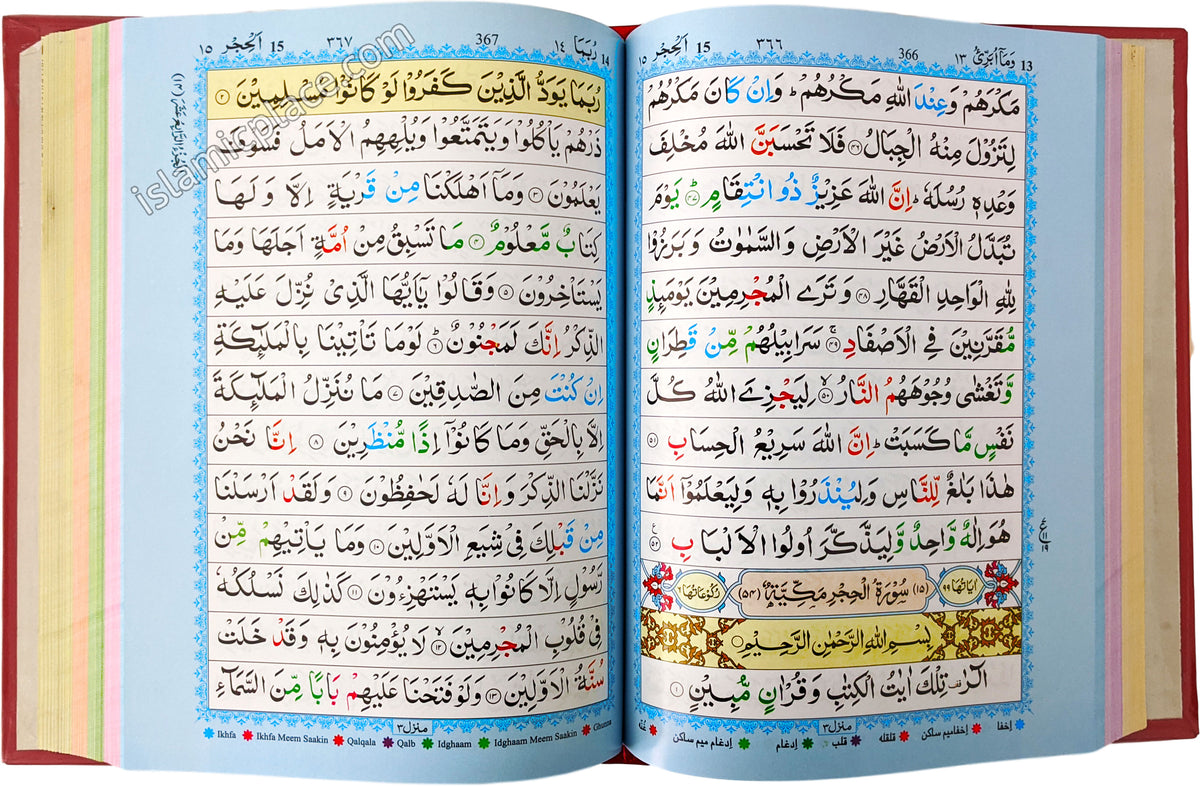 13 وَمَاۤ اُبَرِّئُ ١٣
366
٣٦٦
15 اَلْحِجْر ١٥
مَكْرَهُمْ وَعِنْدَ اللّٰهِ مَكْرُهُمْ ؕ وَاِنْ كَانَ مَكْرُهُمْ
لِتَزُوْلَ مِنْهُ الْجِبَالُ ﴿۴۶﴾ فَلَا تَحْسَبَنَّ اللّٰهَ مُخْلِفَ
وَعْدِهٖ رُسُلَهٗ ؕ اِنَّ اللّٰهَ عَزِيْزٌ ذُو انْتِقَامٍ ﴿۴۷﴾ يَوْمَ
تُبَدَّلُ الْاَرْضُ غَيْرَ الْاَرْضِ وَالسَّمٰوٰتُ وَبَرَزُوْا
لِلّٰهِ الْوَاحِدِ الْقَهَّارِ ﴿۴۸﴾ وَتَرَى الْمُجْرِمِيْنَ يَوْمَىِٕذٍ
مُّقَرَّنِيْنَ فِي الْاَصْفَادِ ﴿۴۹﴾ سَرَابِيْلُهُمْ مِّنْ قَطِرَانٍ
وَّتَغْشٰى وُجُوْهَهُمُ النَّارُ ﴿۵۰﴾ لِيَجْزِيَ اللّٰهُ كُلَّ
نَفْسٍ مَّا كَسَبَتْ ؕ اِنَّ اللّٰهَ سَرِيْعُ الْحِسَابِ ﴿۵۱﴾
هٰذَا بَلٰغٌ لِّلنَّاسِ وَلِيُنْذَرُوْا بِهٖ وَلِيَعْلَمُوْۤا اَنَّمَا
هُوَ اِلٰهٌ وَّاحِدٌ وَّلِيَذَّكَّرَ اُولُوا الْاَلْبَابِ ﴿۵۲﴾
ع ١١ ١٩
اٰيَاتُهَا ٩٩ (١٥) سُوْرَةُ الْحِجْرِ مَكِّيَّةٌ (٥٤) رُكُوْعَاتُهَا ٦
بِسْمِ اللّٰهِ الرَّحْمٰنِ الرَّحِيْمِ
الٓرٰ ۫ تِلْكَ اٰيٰتُ الْكِتٰبِ وَقُرْاٰنٍ مُّبِيْنٍ ﴿۱﴾
منزل ٣
إخفا إخفا ميم ساكن قلقله قلب إدغام إدغام ميم ساكن غنّه
14 رُبَمَا ١٤
367
٣٦٧
15 اَلْحِجْر ١٥
رُبَمَا يَوَدُّ الَّذِيْنَ كَفَرُوْا لَوْ كَانُوْا مُسْلِمِيْنَ ﴿۲﴾
ذَرْهُمْ يَاْكُلُوْا وَيَتَمَتَّعُوْا وَيُلْهِهِمُ الْاَمَلُ فَسَوْفَ
يَعْلَمُوْنَ ﴿۳﴾ وَمَاۤ اَهْلَكْنَا مِنْ قَرْيَةٍ اِلَّا وَلَهَا
كِتَابٌ مَّعْلُوْمٌ ﴿۴﴾ مَا تَسْبِقُ مِنْ اُمَّةٍ اَجَلَهَا وَمَا
يَسْتَاْخِرُوْنَ ﴿۵﴾ وَقَالُوْا يٰۤاَيُّهَا الَّذِيْ نُزِّلَ عَلَيْهِ
الذِّكْرُ اِنَّكَ لَمَجْنُوْنٌ ﴿۶﴾ لَوْ مَا تَاْتِيْنَا بِالْمَلٰٓىِٕكَةِ
اِنْ كُنْتَ مِنَ الصّٰدِقِيْنَ ﴿۷﴾ مَا نُنَزِّلُ الْمَلٰٓىِٕكَةَ
اِلَّا بِالْحَقِّ وَمَا كَانُوْۤا اِذًا مُّنْظَرِيْنَ ﴿۸﴾ اِنَّا نَحْنُ
نَزَّلْنَا الذِّكْرَ وَاِنَّا لَهٗ لَحٰفِظُوْنَ ﴿۹﴾ وَلَقَدْ اَرْسَلْنَا
مِنْ قَبْلِكَ فِيْ شِيَعِ الْاَوَّلِيْنَ ﴿۱۰﴾ وَمَا يَاْتِيْهِمْ مِّنْ
رَّسُوْلٍ اِلَّا كَانُوْا بِهٖ يَسْتَهْزِءُوْنَ ﴿۱۱﴾ كَذٰلِكَ نَسْلُكُهٗ
فِيْ قُلُوْبِ الْمُجْرِمِيْنَ ﴿۱۲﴾ لَا يُؤْمِنُوْنَ بِهٖ وَقَدْ خَلَتْ
سُنَّةُ الْاَوَّلِيْنَ ﴿۱۳﴾ وَلَوْ فَتَحْنَا عَلَيْهِمْ بَابًا مِّنَ السَّمَآءِ
منزل ٣
Ikhfa Ikhfa Meem Saakin Qalqala Qalb Idghaam Idghaam Meem Saakin Ghunna
اَلْجُزْءُ الرَّابِعُ عَشَرَ (١٤)
islamicplace.com